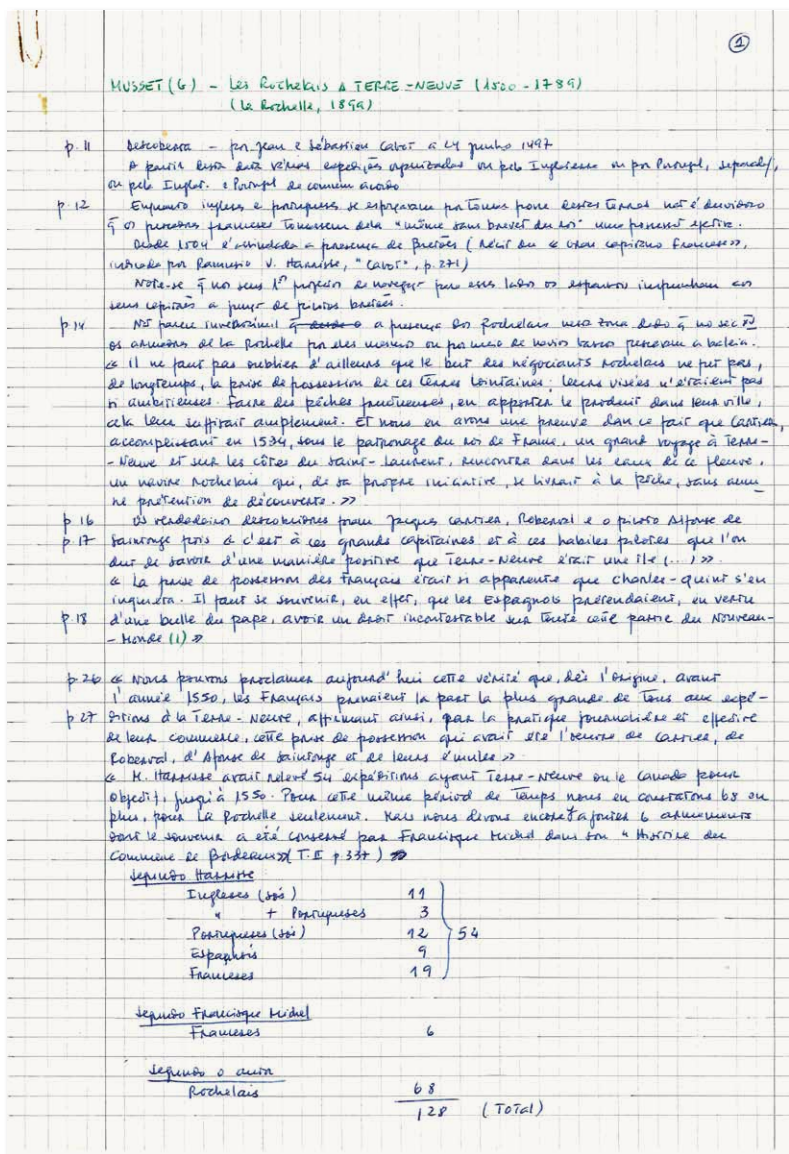 1
MUSSET (G) - Les Rochelais A TERRE-NEUVE (1500-1789)
(La Rochelle, 1899)
p. 11 Descoberta - por Jean e Sébastien Cabot a 24 junho 1497
A partir desta data várias expedições organizadas ou pela Inglaterra ou por Portugal, separad/,
ou pela Inglat. e Portugal de comum acordo
p. 12 Enquanto ingleses e portugueses se esforçavam por tomar posse destas terras não é duvidoso
q̃ os pescadores franceses tomassem dela "même sans brevet du roi" uma possessão efectiva.
Desde 1504 é assinalada a presença de Bretões (récit du « gran capitano francese»,
indicada por Ramusio V. Harrisse, "Cabot", p. 271)
Note-se q̃ nos seus 1os projectos de navegação para esses lados os espanhóis impunham aos
seus capitães a junção de pilotos bretões.
p. 14 Não parece inverosímil a presença dos Rochelais nessa zona dado q̃ no séc XV
os armadores de la Rochelle por eles mesmos ou por meio de navios bascos pescavam a baleia.
« Il ne faut pas oublier d'ailleurs que le but des négociants rochelais ne fut pas,
de longtemps, la prise de possession de ces terres lointaines; leurs visées n'étaient pas
si ambitieuses. Faire des pêches fructueuses, en apporter le produit dans leur ville,
cela leur suffisait amplement. Et nous en avons une preuve dans ce fait que Cartier,
accomplissant en 1534, sous le patronage du roi de France, un grand voyage à Terre-
-Neuve et sur les côtes du Saint-Laurent, rencontra dans les eaux de ce fleuve,
un navire rochelais qui, de sa propre initiative, se livrait à la pêche, sans aucu
ne prétention de découverte. »
p. 16 Os verdadeiros descobridores foram Jacques Cartier, Roberval e o piloto Alfonse de
p. 17 Saintonge pois « c'est à ces grands capitaines et à ces habiles pilotes que l'on
dut de savoir d'une manière positive que Terre-Neuve était une île (...) ».
« La prise de possession des Français était si apparente que Charles-Quint s'en
inquiéta. Il faut se souvenir, en effet, que les Espagnols prétendaient, en vertu
p. 18 d'une bulle du pape, avoir un droit incontestable sur toute cette partie du Nouveau-
-Monde (1) »
p. 26 « Nous pouvons proclamer aujourd'hui cette vérité que, dès l'origine, avant
l'année 1550, les Français prenaient la part la plus grande de tous aux expé-
p. 27 ditions à la Terre-Neuve, affirmant ainsi, par la pratique journalière et effective
de leur commerce, cette prise de possession qui avait été l'oeuvre de Cartier, de
Roberval, d'Alfonse de Saintonge et de leurs émules »
« M. Harrisse avait relevé 54 expéditions ayant Terre-Neuve ou le Canada pour
objectif, jusqu'à 1550. Pour cette même périod de temps nous en constatons 68 ou
plus, pour La Rochelle seulement. Mais nous devons encore y ajouter 6 armements
dont le souvenir a été conservé par Francisque Michel dans son "Histoire du
Commerce de Bordeaux» (T. II p. 337) »
Segundo Harrisse
Ingleses (sós) 11
" + Portugueses 3
Portugueses (sós) 12 54
Espanhóis 9
Franceses 19
Segundo Francisque Michel
Franceses 6
Segundo o autor
Rochelais 68
128 (Total)